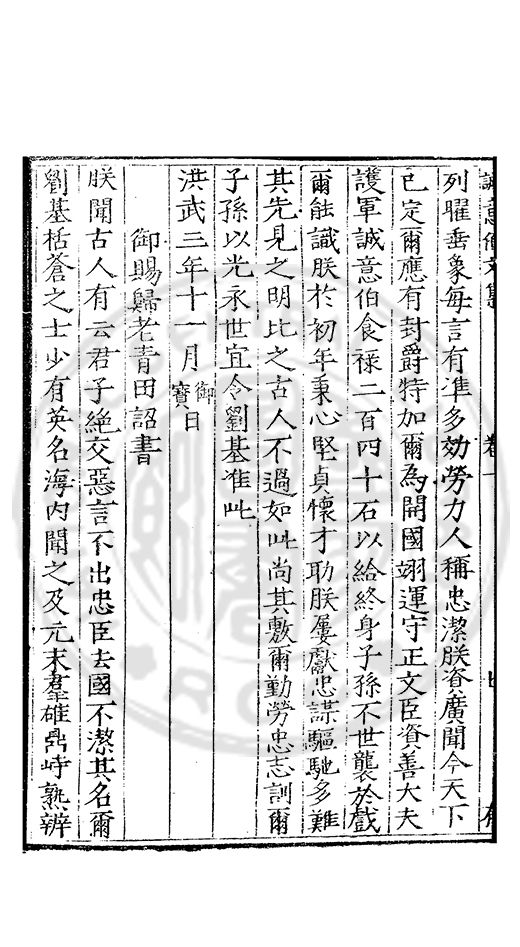 誠意伯文集 卷一
列曜垂象每言有準多効勞力人稱忠潔朕資廣聞今天下
已定爾應有封爵特加爾為開國翊運守正文臣資善大夫
護軍誠意伯食祿二百四十石以給終身子孫不世襲於戲
爾能識朕於初年秉心堅貞懷才助朕屢獻忠謀驅馳多難
其先見之明比之古人不過如此尚其敷爾勤勞忠志訓爾
子孫以光永世宜令劉基准此
洪武三年十一月 御寶 日
御賜歸老青田詔書
朕聞古人有云君子絶交惡言不出忠臣去國不潔其名爾
劉基栝蒼之士少有英名海內聞之及元末羣雄鼎峙熟辨